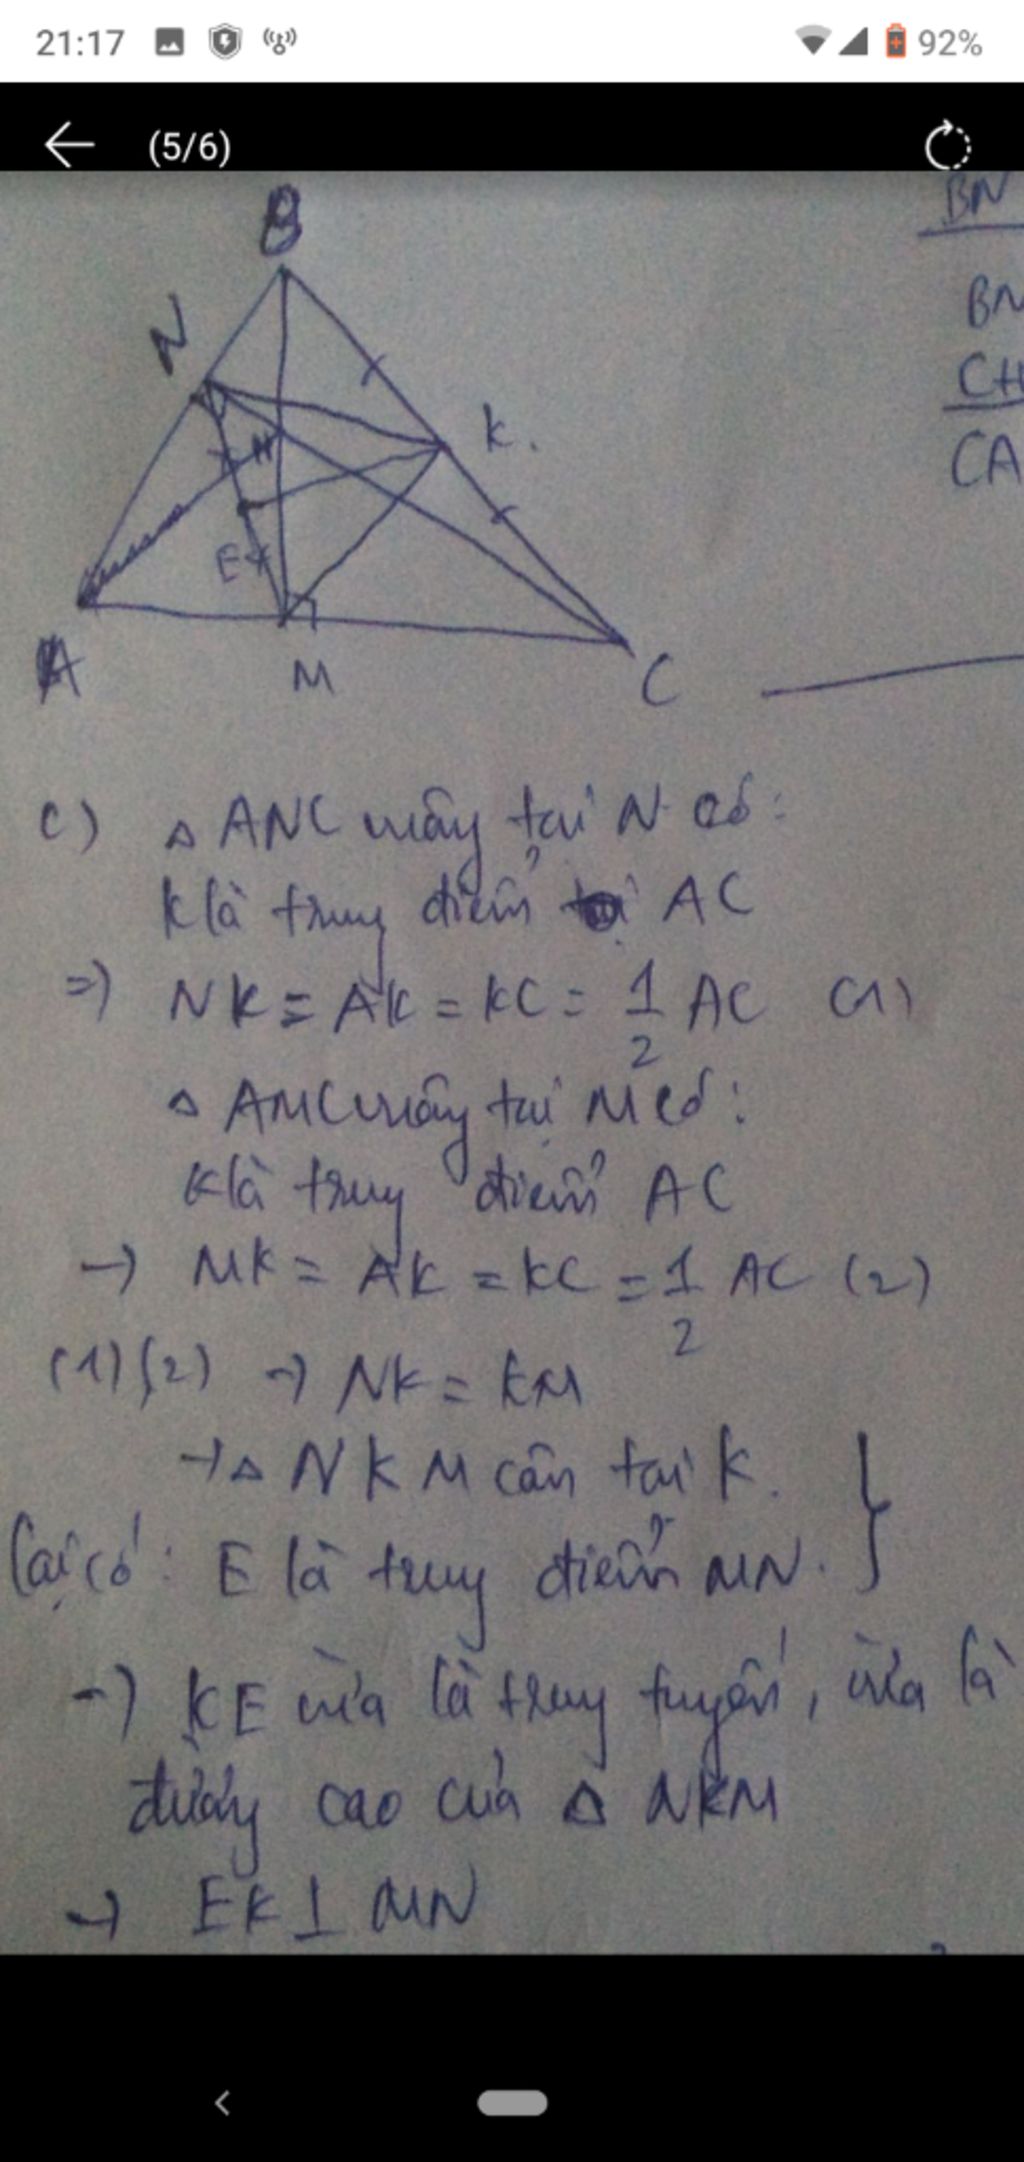 21:17
92%
(5/6)
BN
B
N
BN
K.
CH
H
CA
E
A
M
C
c) Δ ANC vuông tại N có:
K là trung điểm AC
=> NK = AK = KC = 1/2 AC (1)
Δ AMC vuông tại M có:
K là trung điểm AC
-> MK = AK = KC = 1/2 AC (2)
(1)(2) -> NK = KM
-> Δ NKM cân tại K.
Lại có: E là trung điểm MN.
-> KE vừa là trung tuyến, vừa là
đường cao của Δ NKM
-> EK ⊥ MN